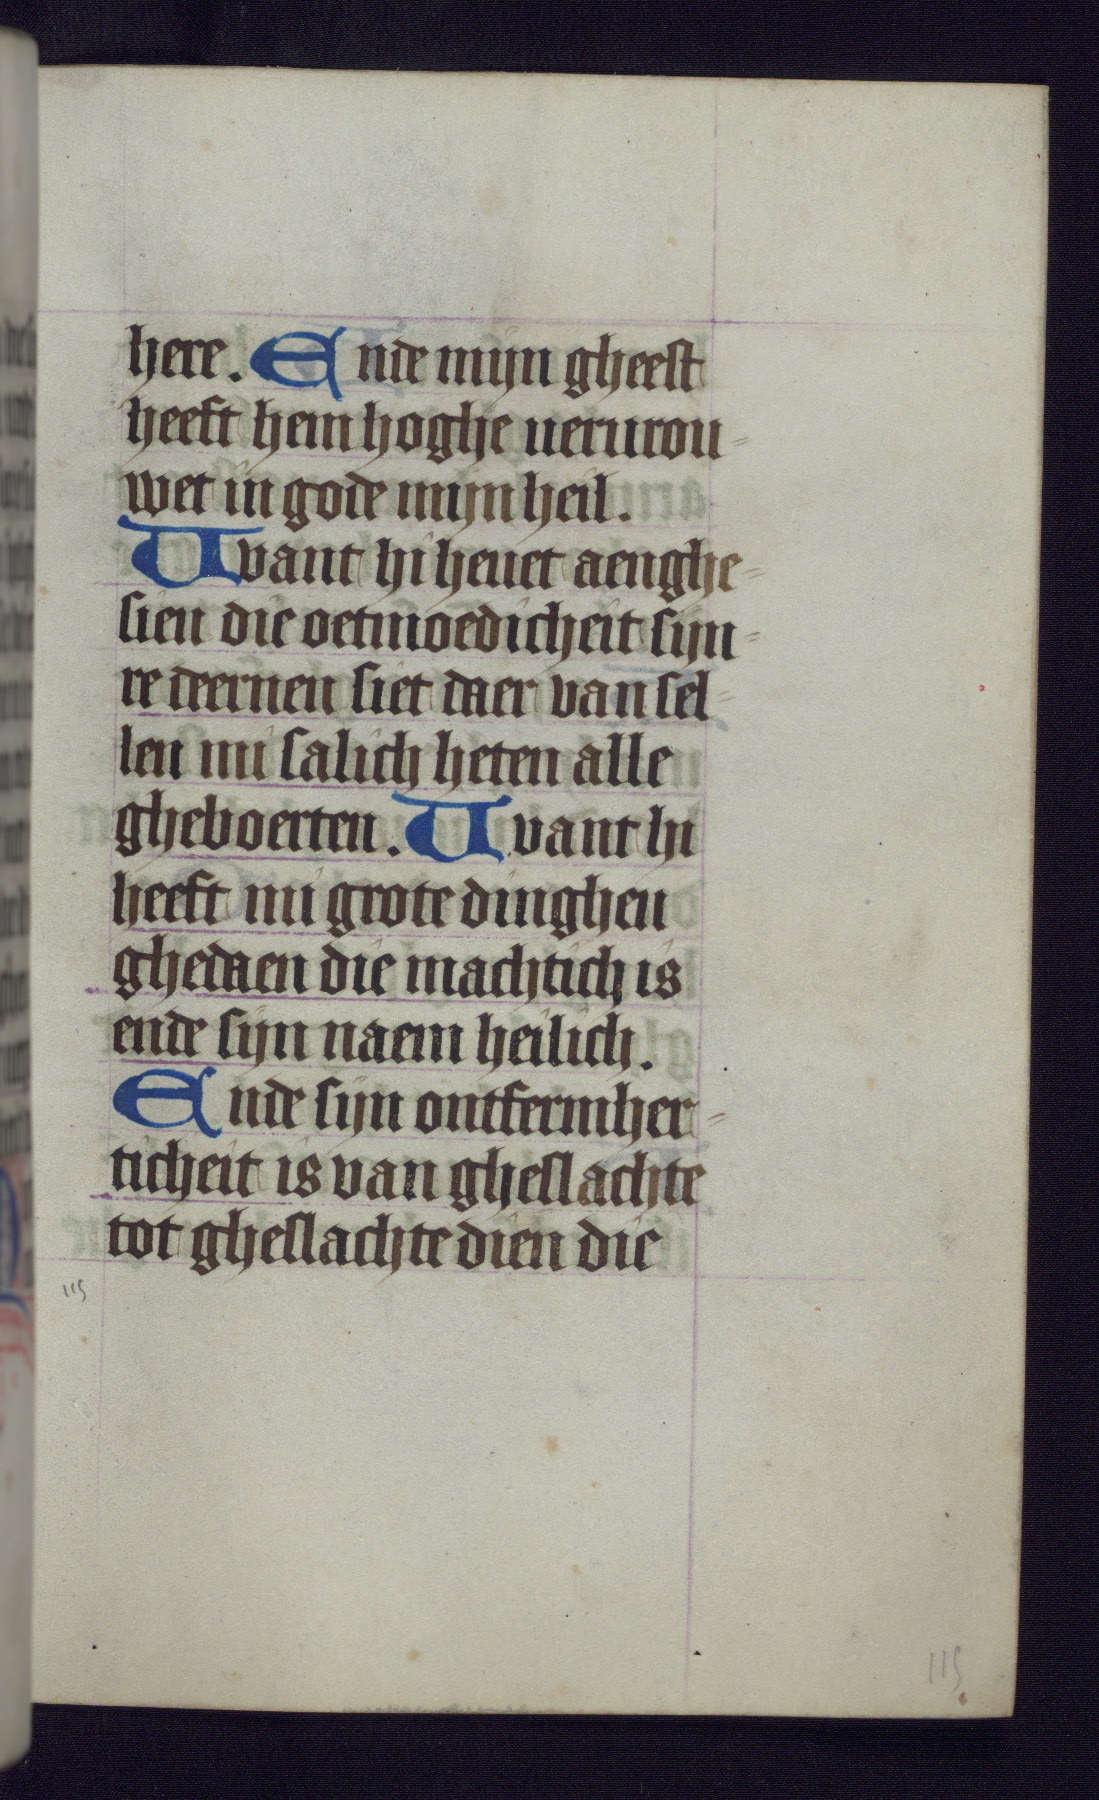 here. Ende mijn gheest
heeft hem hoghe uerurou-
wet in gode mijn heil.
Uvant hi heuet aenghe-
sien die oetmoedicheit sijn-
re deernen siet daer van sel-
len mi salich heten alle
gheboerten. Uvant hi
heeft mi grote dinghen
ghedaen die machtich is
ende sijn naem heilich.
Ende sijn ontfermher-
ticheit is van gheslachte
tot gheslachte dien die
115
115